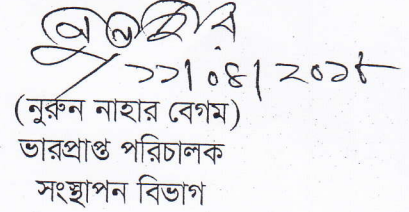 ১১/০৪/২০১৮
(নুরুন নাহার বেগম)
ভারপ্রাপ্ত পরিচালক
সংস্থাপন বিভাগ